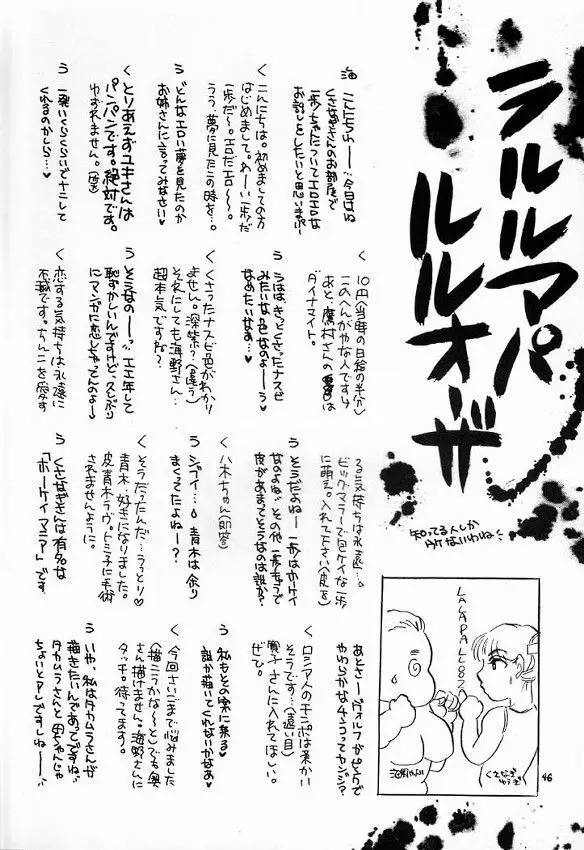 ラルルマパ
ルルオーザ
知ってる人しか
海 こんにちわーー…今日はね
くさなぎさんのお部屋で
一歩ちゃんについてエロエロな
お話しをしたいと思いまぷー
く こんにちは。初めましての方
はじめまして。わーい一歩だ
一歩だ〜。エロだエロ〜〜。
うう、夢に見たこの時を…。
う どんなエロい夢を見たのか
お姉さんに言ってみなさい♥
く とりあえずユキさんは
パンパンです。絶対です。
ゆずれません。
う 一発いくらくらいでナニして
くれるのかしら…♥
く 10円(当時の日給の半分)
このへんがやな人ですけ
あと、鷹村さんの
ダイナマイト。
う うはは、きっとくさったナスビ
みたいな色なのよーーう
なめたいなあ…♥
く くさったナスビ色がわかり
ません。深緑?(違う)
それにしても海野さん…
超本気ですね?
う そうなのーー…エエ年して
恥ずかしいんですけど久しぶり
にマンガに恋しちゃってんのよ〜♥
く 恋する気持ちは永遠に
不滅です。ちんこを愛す
る気持ちは永遠…。
ビッグマラーで包ケイな一歩
に萌え。入れて下さい
う そうだよねー一歩はホーケイ
なのよね、その他一歩キャラで
皮があまってそうなのは誰か?
く 八木ちゃん(即答)
う ジョイ…。青木は余り
まくってたよねー?
く そうだったんだ…うっとり♡
青木…好きになりました。
皮青木ラヴ。トミ子に手術
されませんように。
う くさなぎさんは有名な
「ホーケイマニア」です。
あとさーヴォルフがピンクで
やわらかな4ンコってカンジ?
く ロシア人のチンポは柔かい
そうです…(遠い目)
寛子さんに入れてほしい。
ぜひ。
う 私もその案に乗る♥
誰か描いてくれないかなあ♥
く 今回さいごまで悩みました
(描こうかな〜)とても奥
さん描けません。海野さんに
タッチ。待ってます。
う いや、私はタカムラさんが
描きたいんであってですね
タカムラさんと母ちゃんじゃ
ちょいとアレですしねーー
LALAPALLOOZA
46